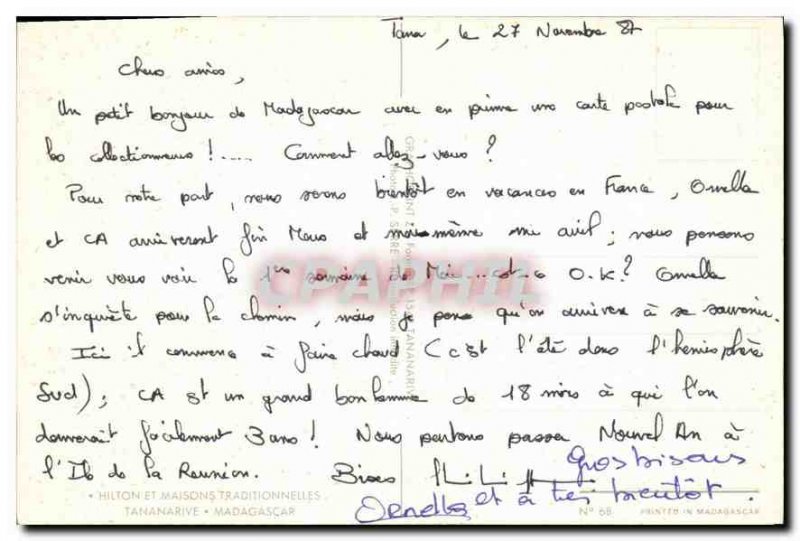 Tana, le 27 Novembre 87
Chers amis,
Un petit bonjour de Madagascar avec en prime une carte postale pour
les collectionneurs !.... Comment allez-vous ?
Pour notre part, nous serons bientôt en vacances en France, Ornella
et CA arriveront fin Mars et moi-même mi avril ; nous pensons
venir vous voir la 1ère semaine de Mai... est-ce O.K ? Ornella
s'inquiète pour le chemin, mais je pense qu'on arrivera à se souvenir.
Ici il commence à faire chaud (c'est l'été dans l'hémisphère
Sud) ; CA est un grand bonhomme de 18 mois à qui l'on
donnerait facilement 3 ans ! Nous partons passer Nouvel An à
l'Ile de la Réunion. Bises
Gros bisous
et à très bientôt.
Ornella
CPAPHIL
• HILTON ET MAISONS TRADITIONNELLES
TANANARIVE • MADAGASCAR
N° 68
PRINTED IN MADAGASCAR
TANANARIVE